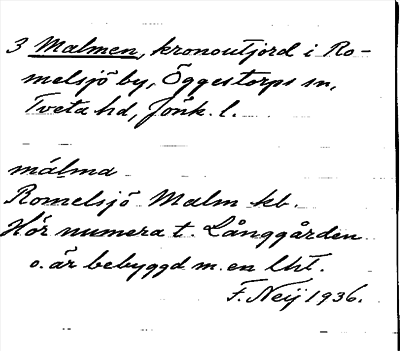 3 Malmen, kronoutjord i Ro-
melsjö by, Öggestorps sn,
Tveta hd, Jönk. l.
málma
Romelsjö Malm kb.
Hör numera t. Långgården
o. är bebyggd m. en lht.
F. Neij 1936.